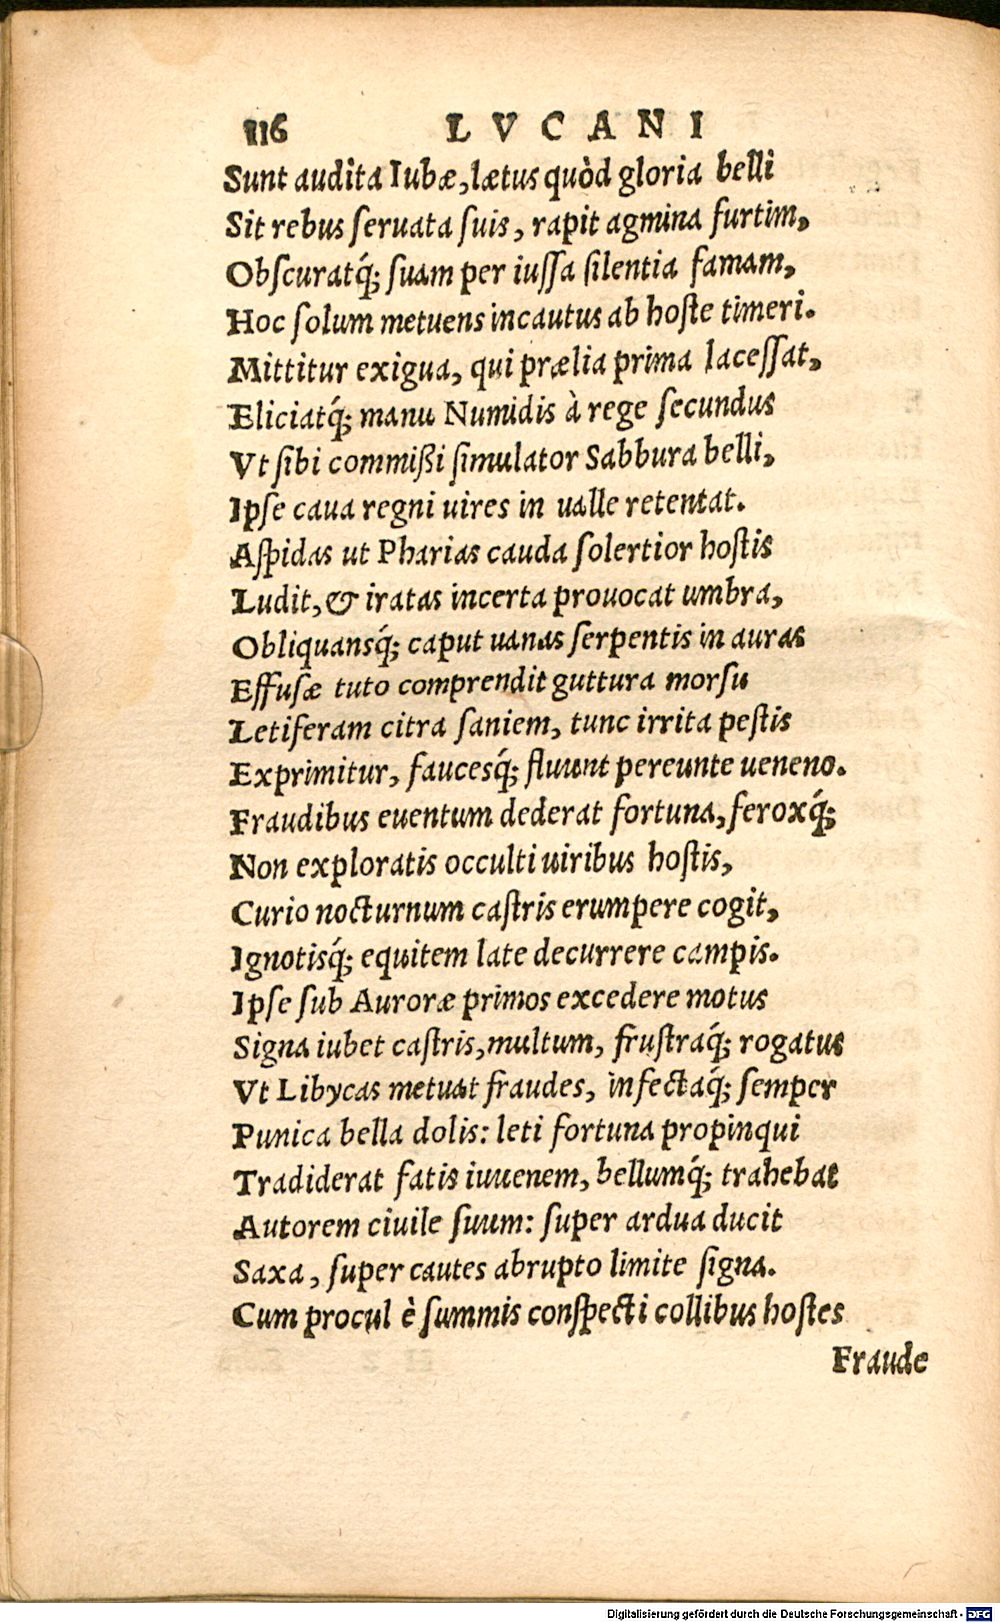 116 LVCANI
Sunt audita Iubæ, lætus quòd gloria belli
Sit rebus seruata suis, rapit agmina furtim,
Obscuratq́; suam per iussa silentia famam,
Hoc solum metuens incautus ab hoste timeri.
Mittitur exigua, qui prælia prima lacessat,
Eliciatq́; manu Numidis à rege secundus
Vt sibi commißi simulator Sabbura belli,
Ipse caua regni uires in ualle retentat.
Aspidas ut Pharias cauda solertior hostis
Ludit, & iratas incerta prouocat umbra,
Obliquansq́; caput uanas serpentis in auras
Effusæ tuto comprendit guttura morsu
Letiferam citra saniem, tunc irrita pestis
Exprimitur, faucesq́; fluunt pereunte ueneno.
Fraudibus euentum dederat fortuna, feroxq́;
Non exploratis occulti uiribus hostis,
Curio nocturnum castris erumpere cogit,
Ignotisq́; equitem late decurrere campis.
Ipse sub Auroræ primos excedere motus
Signa iubet castris, multum, frustraq́; rogatus
Vt Libycas metuat fraudes, infectaq́; semper
Punica bella dolis: leti fortuna propinqui
Tradiderat fatis iuuenem, bellumq́; trahebat
Autorem ciuile suum: super ardua ducit
Saxa, super cautes abrupto limite signa.
Cum procul è summis conspecti collibus hostes
Fraude
Digitalisierung gefördert durch die Deutsche Forschungsgemeinschaft - DFG